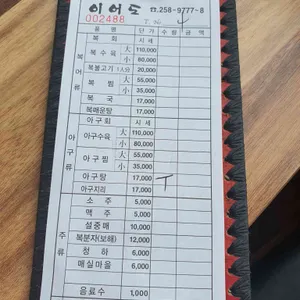 이어도 ☎.258-9777~8
002488 T. No. 4
품명 단가 수량 금액
복어류
복회 시세
복수육 大 110,000
小 80,000
복불고기 1인분 20,000
복찜 大 55,000
小 35,000
복국 17,000
복매운탕 17,000
아구류
아구회 시세
아구수육 大 110,000
小 80,000
아구찜 大 55,000
小 35,000
아구탕 17,000 T
아구지리 17,000
주류
소주 5,000
맥주 5,000
설중매 10,000
복분자(보해) 12,000
청하 6,000
매실마을 6,000
음료수 1,000